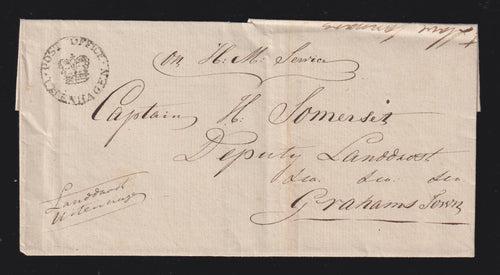 POST OFFICE
UITENHAGEN
On H. M. Service
Captain H: Somerset
Deputy Landdrost
&ca &ca &ca
Grahams Town
Landdrost
Uitenhage